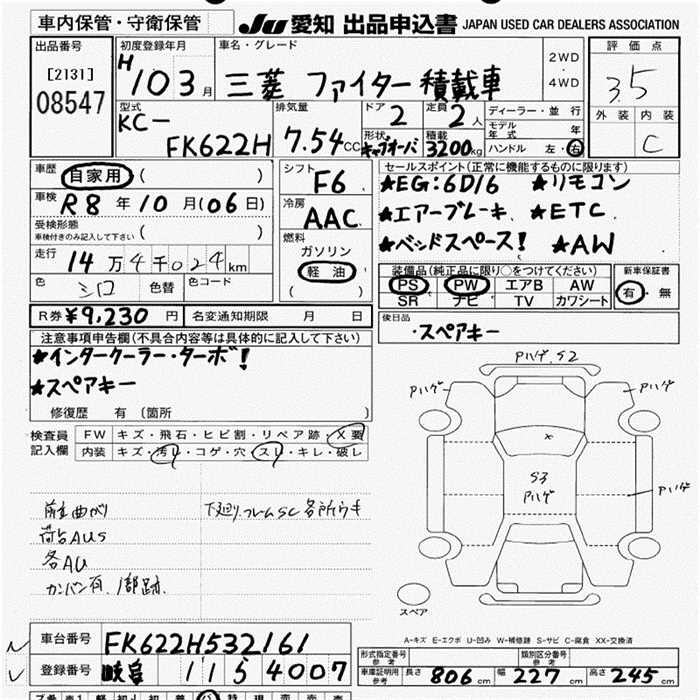 車内保管・守衛保管 JU 愛知 出品申込書 JAPAN USED CAR DEALERS ASSOCIATION
出品番号 [2131] 08547
初度登録年月 H103月
車名・グレード 三菱 ファイター積載車
2WD・4WD
評価点 3.5
外装 内装 C
型式 KC-FK622H
排気量 7.54CC
ドア 2
定員 2人
形状 キャブオーバ
積載 3200kg
ディーラー・並行
モデル年式 年
ハンドル 左・右
車歴 自家用 ( )
車検 R8年10月(06日)
受検形態
車検付きのみ記入して下さい ( )
走行 14万4千024km
色 シロ 色替 色コード
シフト F6
冷房 AAC
燃料 ガソリン 軽油 ( )
セールスポイント(正常に機能するものに限ります)
★EG:6D16 ★リモコン
★エアーブレーキ. ★ETC.
★ベッドスペース! ★AW
装備品(純正品に限り○をつけてください)
PS PW エアB AW
SR ナビ TV カワシート
新車保証書 有・無
R券 ¥9,230円 名変通知期限 月 日
後日品 ・スペアキー
注意事項申告欄(不具合内容等は具体的に記入して下さい)
★インタークーラー・ターボ!
★スペアキー
修復歴 有 (箇所 )
検査員記入欄
FW キズ・飛石・ヒビ割・リペア跡・X要
内装 キズ・汚れ・コゲ・穴・スレ・キレ・破レ
曲がり 下廻り.フレームSC 各所ウキ
荷台AUS
各AU
カンバン有. 跡.
Pハゲ. S2
Pハゲ Pハゲ
×
S3
Pハゲ
Pハゲ
スペア
A-キズ E-エクボ U-凹み W-補修跡 S-サビ C-腐食 XX-交換済
車台番号 FK622H532161
登録番号 岐阜 115 4007
形式指定番号 参考
類別区分番号 参考
車庫証明用参考 長さ 806cm 幅 227cm 高さ 245cm